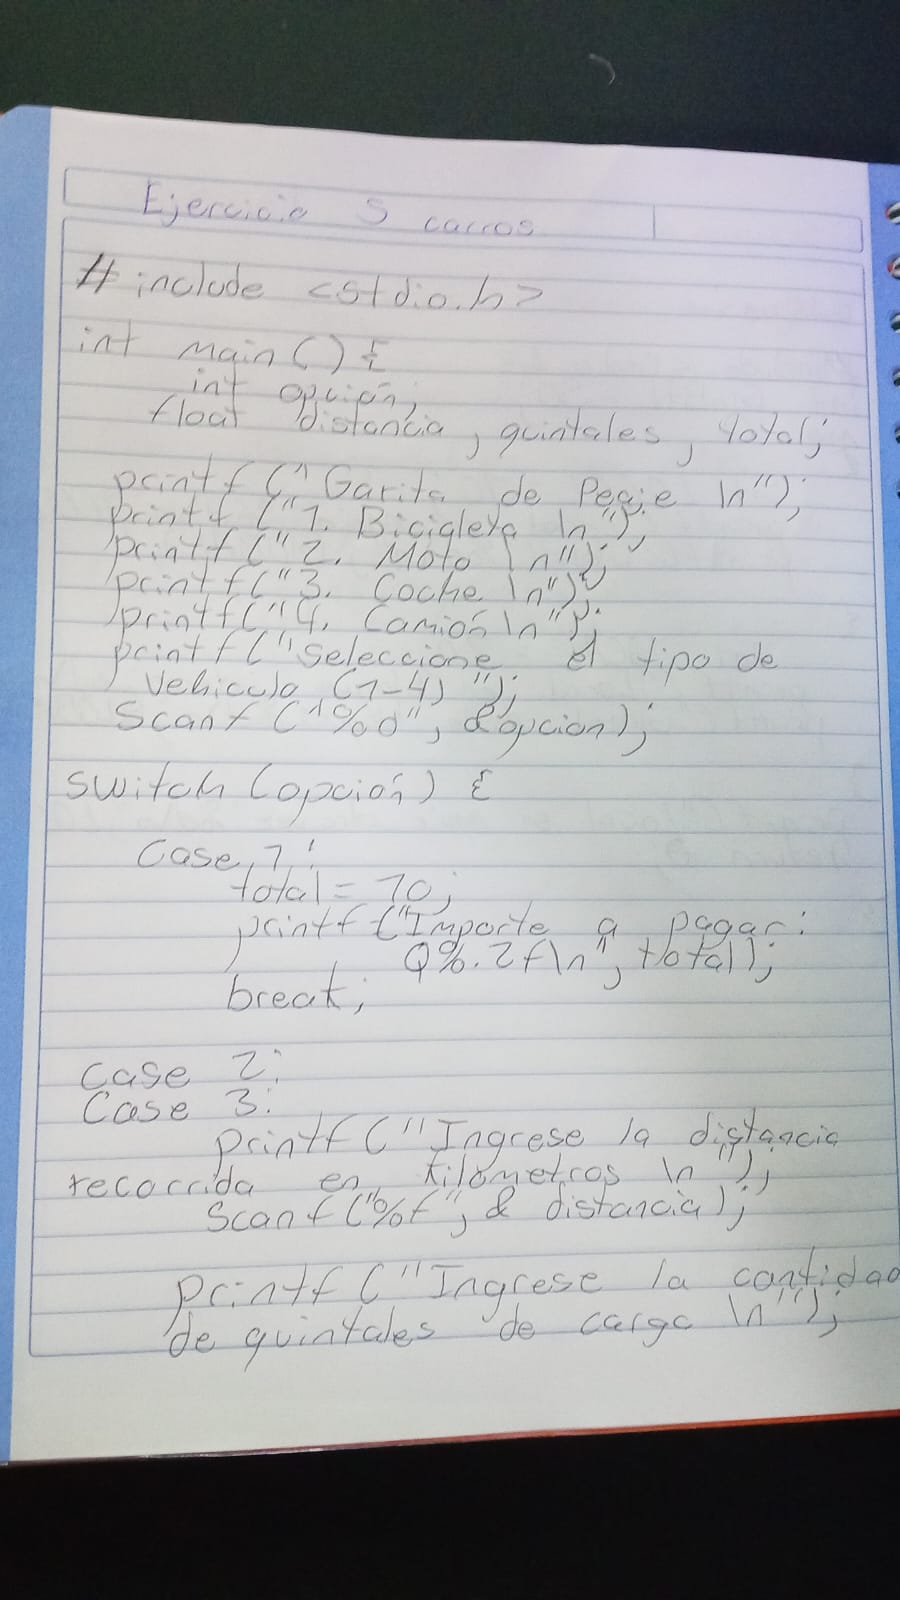 Ejercicio 5 carros
# include <stdio.h>
int main () {
int opción;
float distancia, quintales, total;
printf ("Garita de Peaje \n");
printf ("1. Bicicleta \n");
printf ("2. Moto \n");
printf ("3. Coche \n");
printf ("4. Camión \n");
printf ("Seleccione el tipo de
vehiculo (1-4) ");
Scanf ("%d", &opcion);
switch (opción) {
Case 1:
total = 10;
printf ("Importe a pagar:
Q%.2f\n", total);
break;
Case 2:
Case 3:
printf ("Ingrese la distancia
recorrida en kilómetros \n");
Scanf ("%f", & distancia);
printf ("Ingrese la cantidad
de quintales de carga \n");